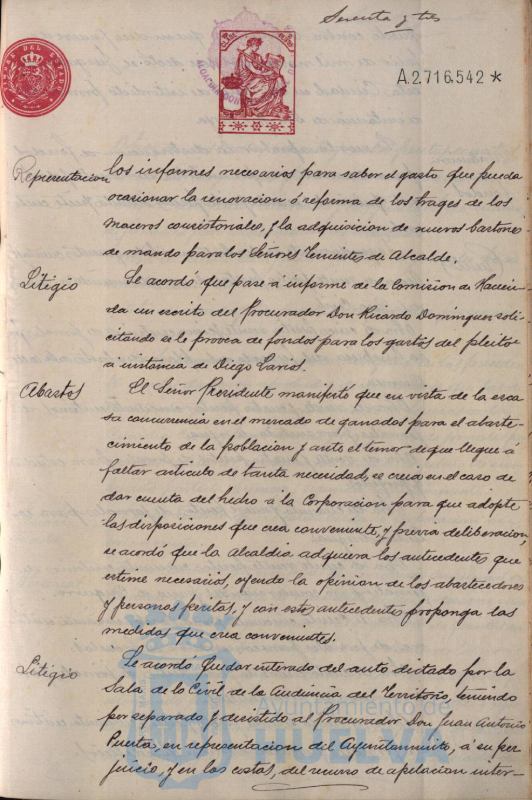 Sesenta y tres
A.2.716.542 *
Representacion
los informes necesarios para saber el gasto que pueda
ocasionar la renovacion ó reforma de los trages de los
maceros consistoriales, y la adquisicion de nuevos bastones
de mando para los Señores Tenientes de Alcalde.
Litigio
Se acordó que pase á informe de la Comision de Hacien-
da un escrito del Procurador Don Ricardo Dominguez soli-
citando se le provea de fondos para los gastos del pleito
á instancia de Diego
Abastos
El Señor Presidente manifestó que en vista de la esca
sa concurrencia en el mercado de ganados para el abaste-
cimiento de la poblacion y ante el temor de que llegue á
faltar articulo de tanta necesidad, se creia en el caso de
dar cuenta del hecho á la Corporacion para que adopte
las disposiciones que crea conveniente, y previa deliberacion,
se acordó que la Alcaldia adquiera los antecedentes que
estime necesarios, oyendo la opinion de los abastecedores
y personas peritas, y con estos antecedentes proponga las
medidas que crea convenientes.
Litigio
Se acordó quedar enterado del auto dictado por la
Sala de lo Civil de la Audiencia del Territorio, teniendo
por separado y desistido al Procurador Don Juan Antonio
Puerta, en representacion del Ayuntamiento, á su per
juicio, y en las costas, del recurso de apelacion inter-
Ayuntamiento de
HUELVA